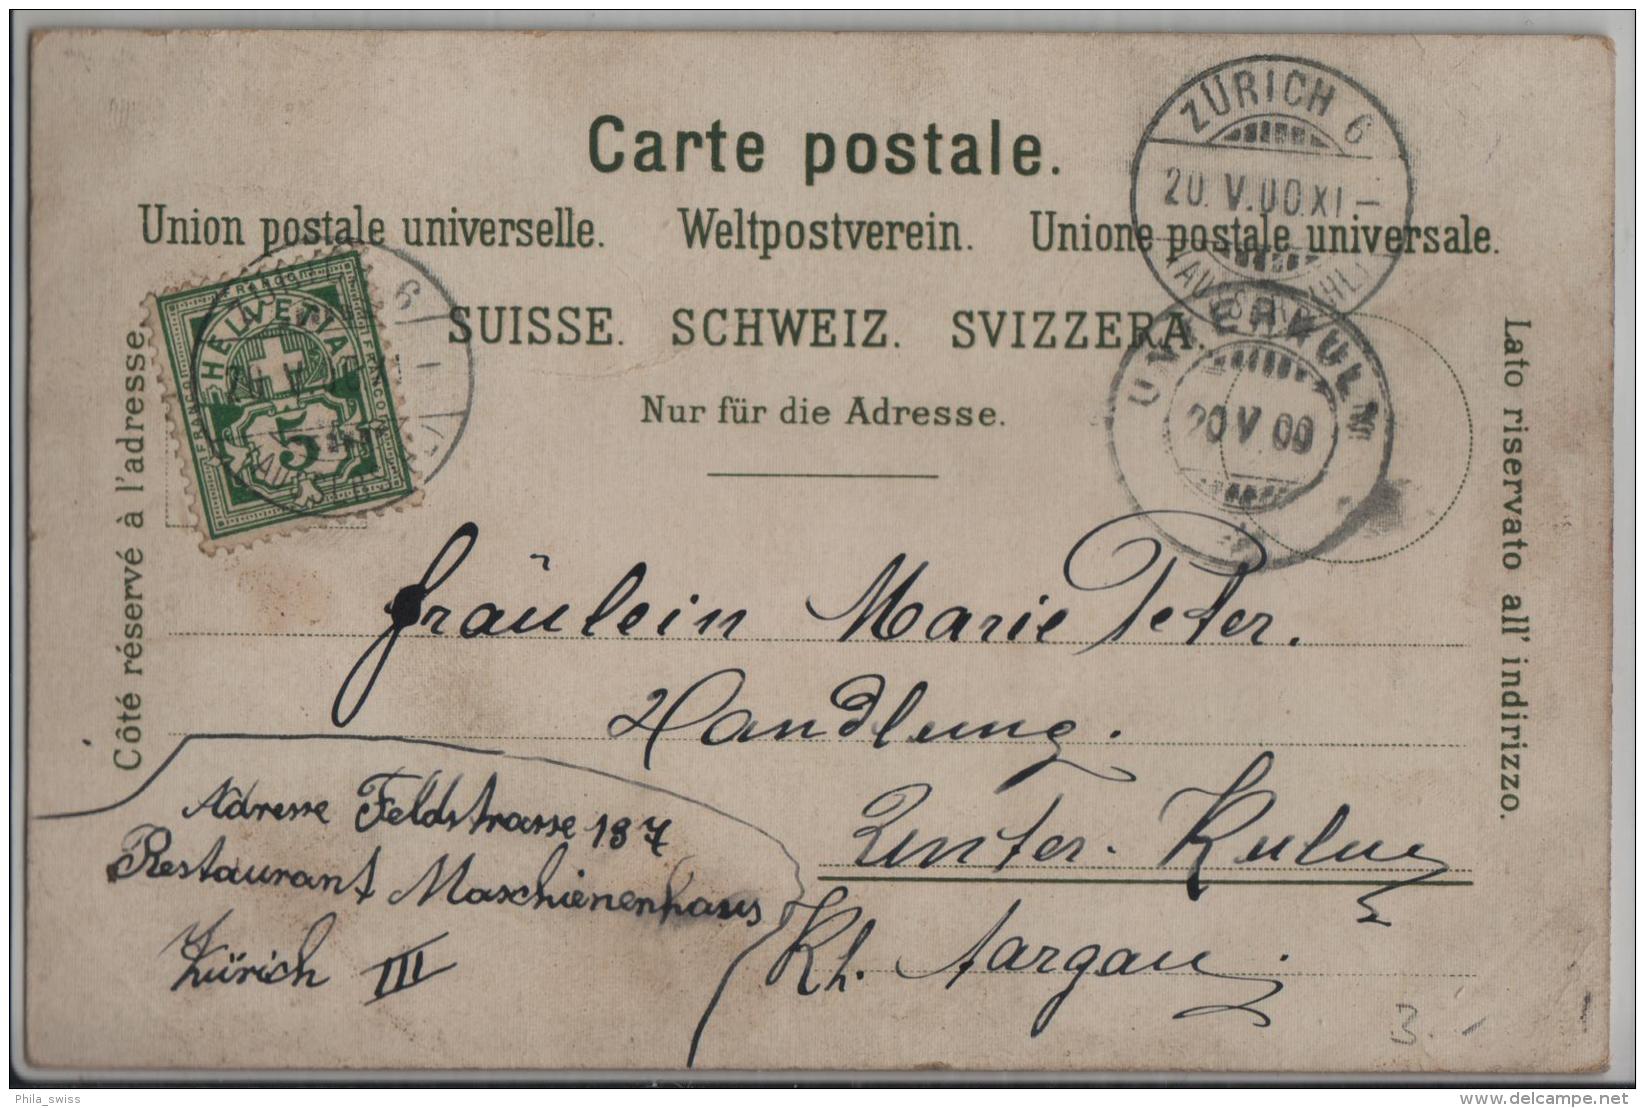 Carte postale.
Union postale universelle. Weltpostverein. Unione postale universale.
SUISSE. SCHWEIZ. SVIZZERA.
Nur für die Adresse.
Côté réservé à l'adresse.
Lato riservato all' indirizzo.
ZÜRICH 6
20. V. 00. XI –
UNTERKULM
20 V 00
FRANCO
HELVETIA
FRANCO
FRANCO
5
6
Fräulein Marie Peter.
Handlung.
Unter-Kulm
Kt. Aargau.
Adresse Feldstrasse 137
Restaurant Maschienenhaus
Zürich III
3.-
Phila_swiss
delcampe.net